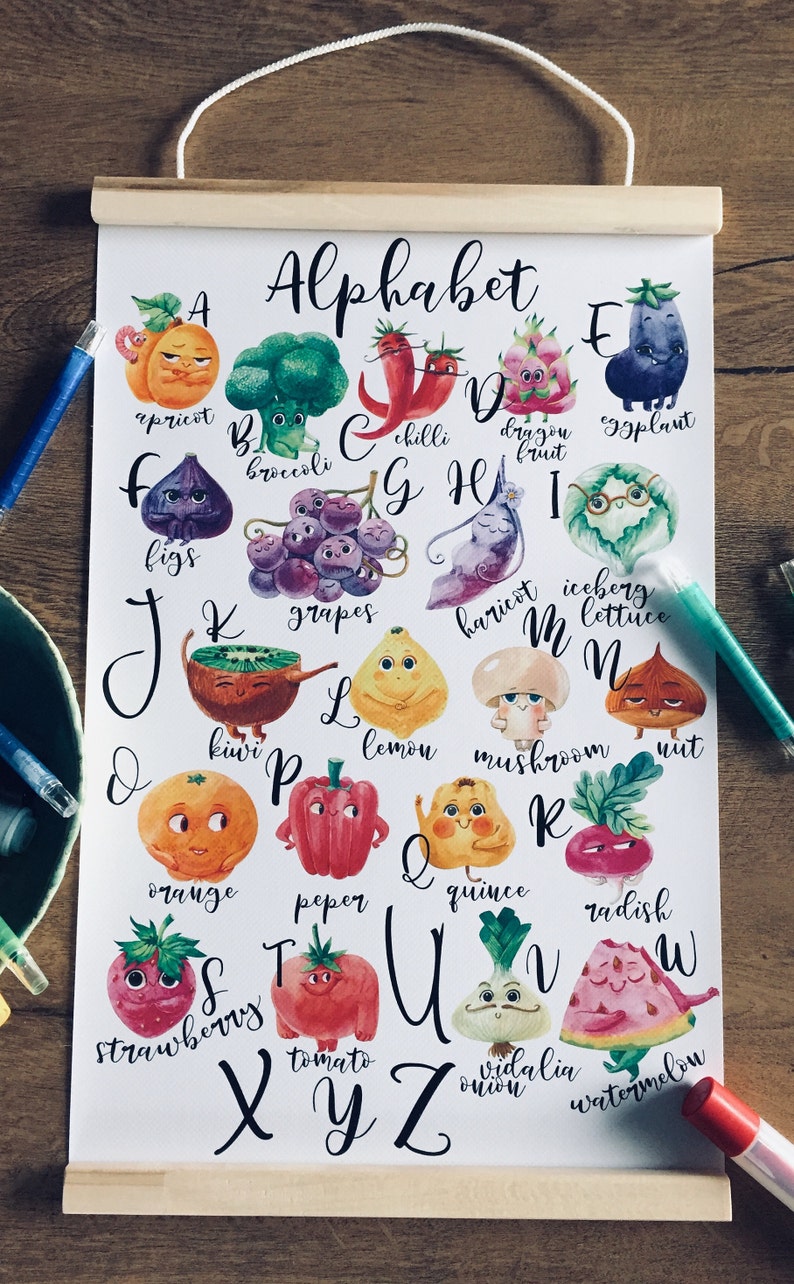 Alphabet
A
apricot
B
broccoli
C
chilli
D
dragon
fruit
E
eggplant
F
figs
G
grapes
H
haricot
I
iceberg
lettuce
J
K
kiwi
L
lemon
M
mushroom
N
nut
O
orange
P
peper
Q
quince
R
radish
S
strawberry
T
tomato
U
V
vidalia
onion
W
watermelon
X Y Z